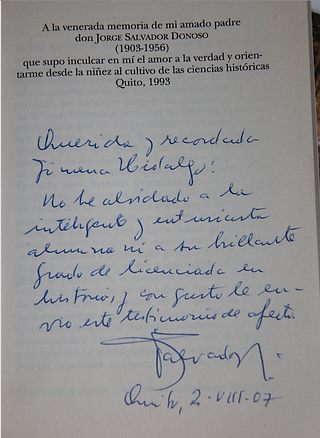 A la venerada memoria de mi amado padre
don JORGE SALVADOR DONOSO
(1903-1956)
que supo inculcar en mí el amor a la verdad y orien-
tarme desde la niñez al cultivo de las ciencias históricas
Quito, 1993
Querida y recordada
Jimena Hidalgo:
No he olvidado a la
inteligente y entusiasta
alumna ni a su brillante
grado de licenciada en
historia, y con gusto le en-
vío este testimonio de afecto.
JSalvadorL.
Quito, 2-VIII-07